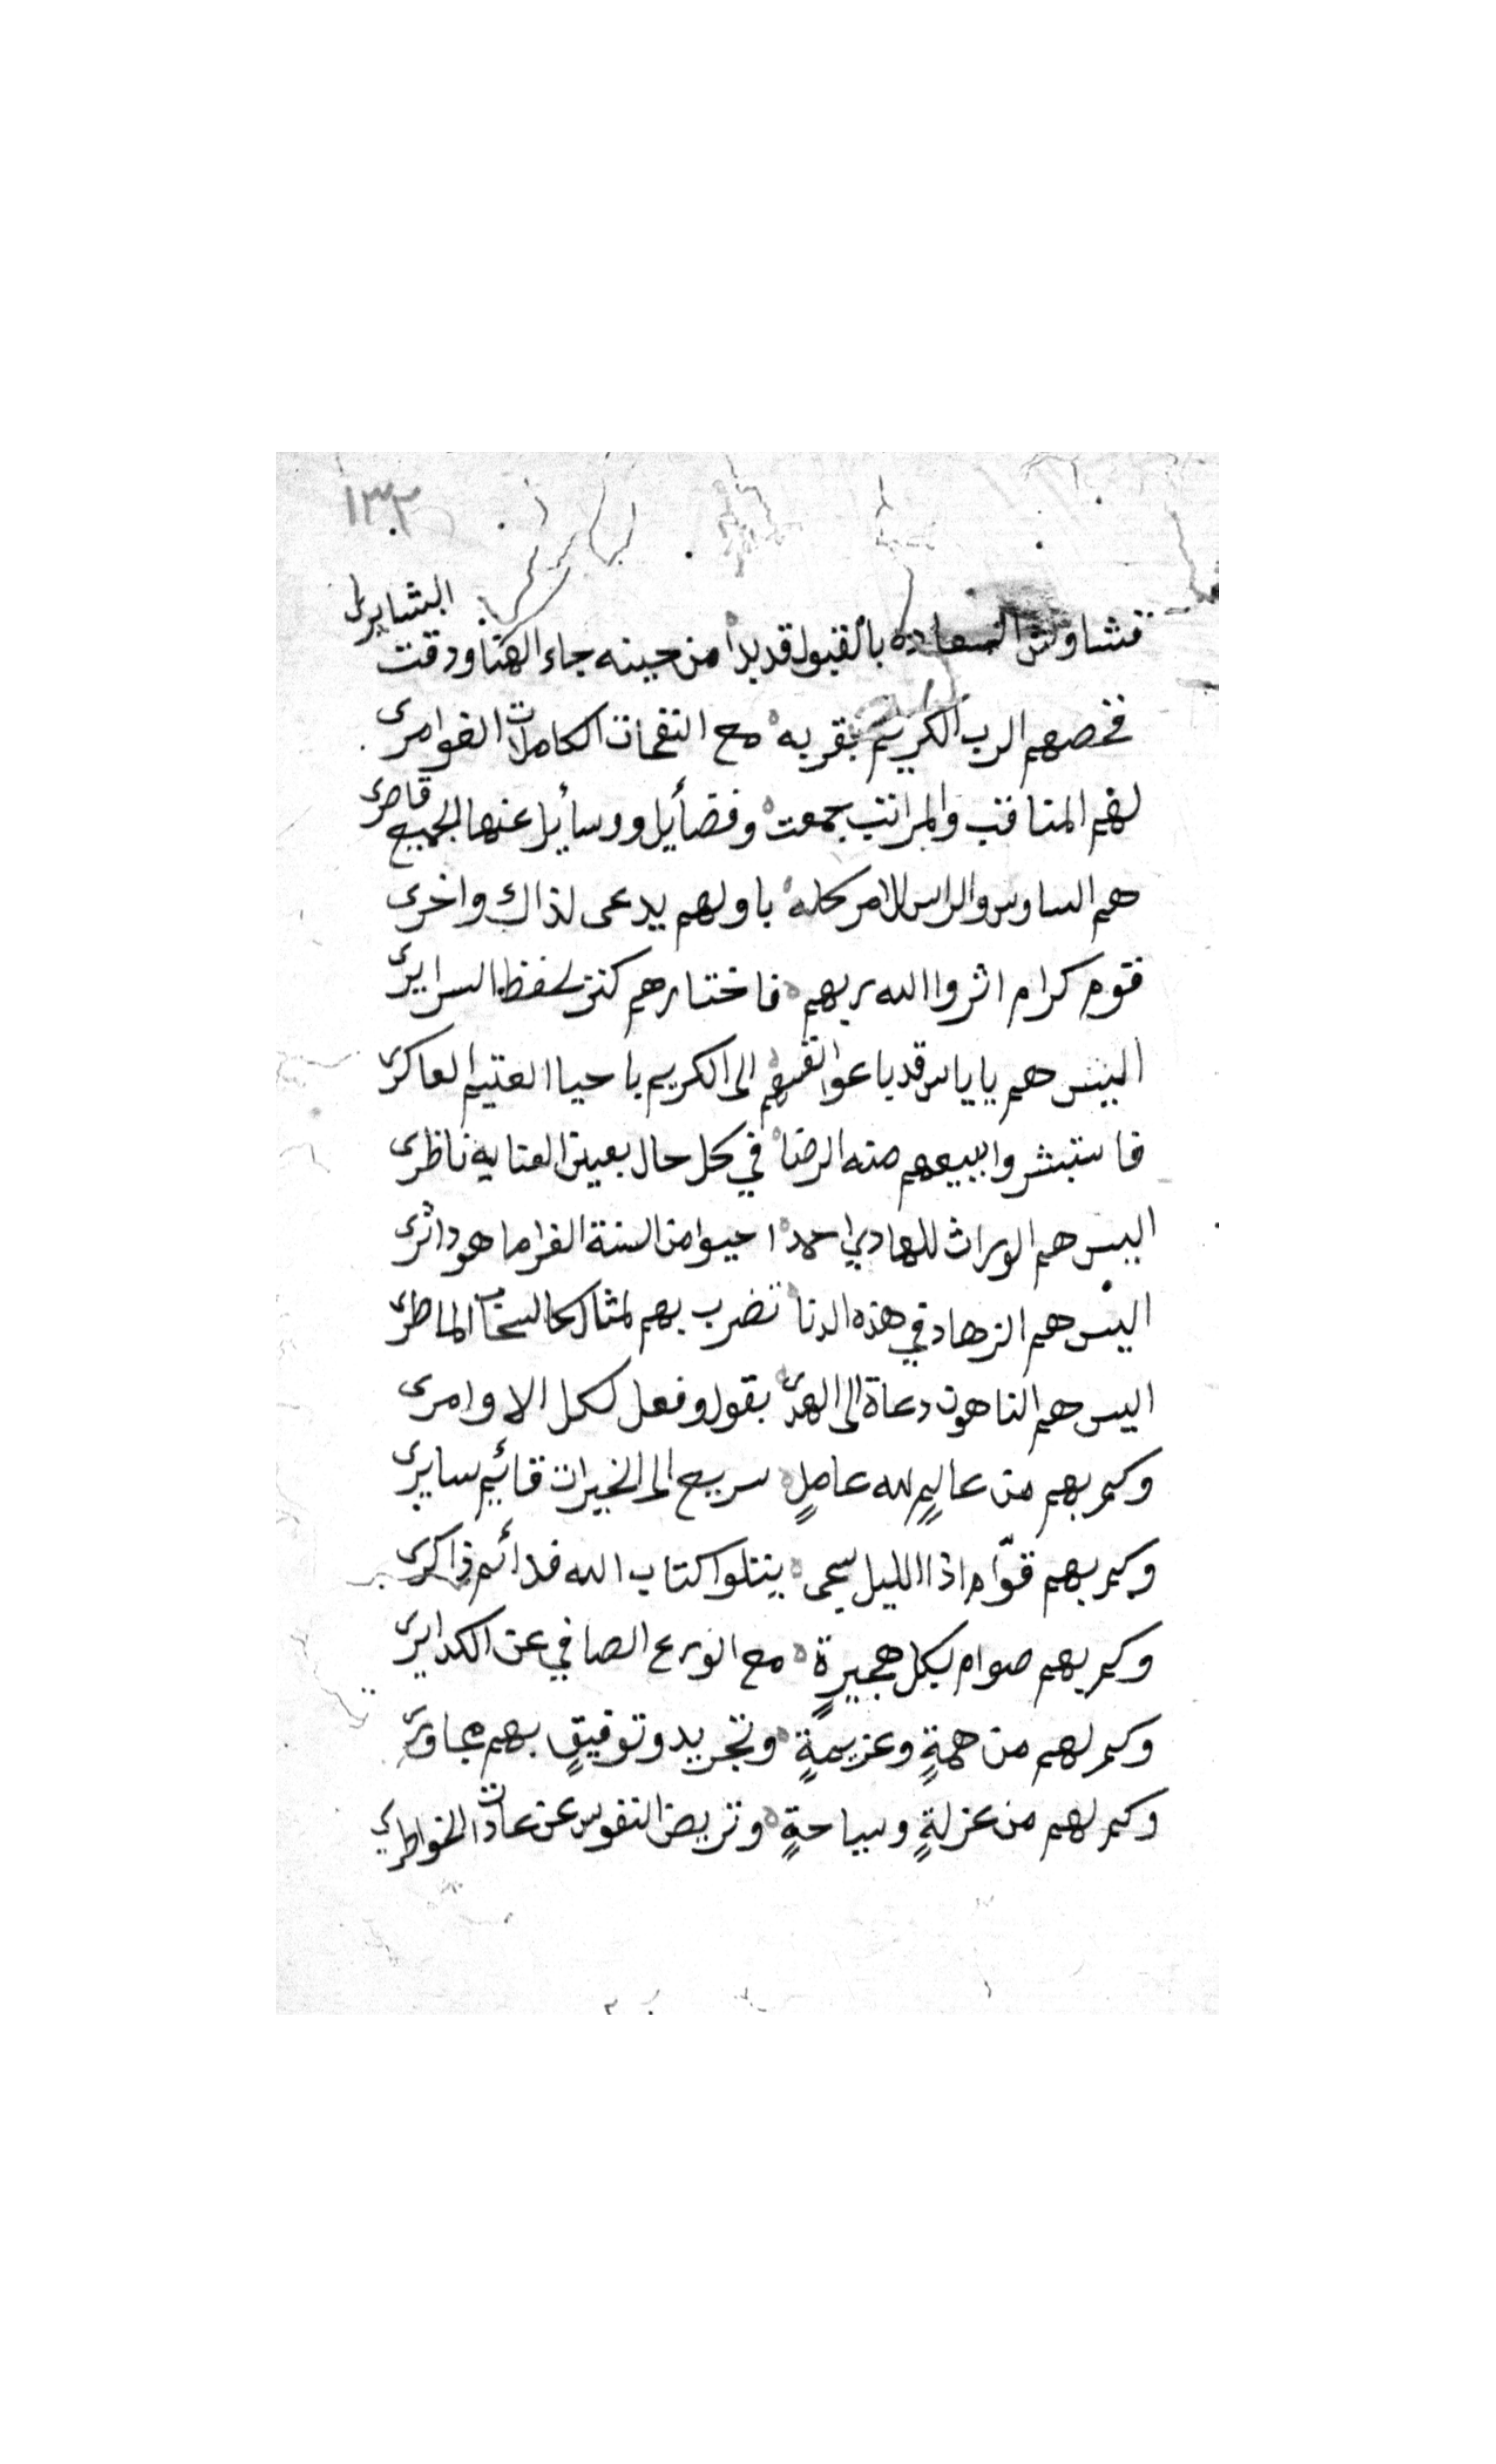 ١٣٢
فشاوش السعاده بالقبول قد بدا من حينه جاء الهنا ودقت البشايرى
فخصهم الرب الكريم بقربه مع النفحات الكاملات الغوامرى
لهم المناقب والمراتب جمعت وفضأيل ووسأيل عنها الجميع قاصرى
هم الساوس والراس للامر كله باولهم يدعى لذاك واخرى
قوم كرام اثروا الله ربهم فاختارهم كنز لحفظ السرايرى
اليس هم ياياس قد باعوا انفسهم الى الكريم باحياا العتيم العاكرى
فاستبشروا ببيعهم منه الرضا في كل حال بعين العنايه ناظرى
اليس هم الوراث للهادي احمد احيوا من السنة الغرا ما هو داثرى
اليس هم الزهاد في هذه الدنا تضرب بهم لمثال كالسحاب الماطرى
اليس هم الناهون دعاة الى الهدى بقول وفعل لكل الاوامرى
وكم بهم من عاليمٍ لله عاملٍ سريع الى الخيرات قأيم سايرى
وكم بهم قوّام اذا الليل سجى يتلوا كتاب الله فدأئم ذاكرى
وكم بهم صوام لكل هجيرةٍ مع الورع الصافي عن الكدايرى
وكم لهم من همةٍ وعزيمةٍ وتجريد وتوفيقٍ بهم مجاورى
وكم لهم من عزلةٍ وسياحةٍ وتريض النفوس عن عادات الخواطري